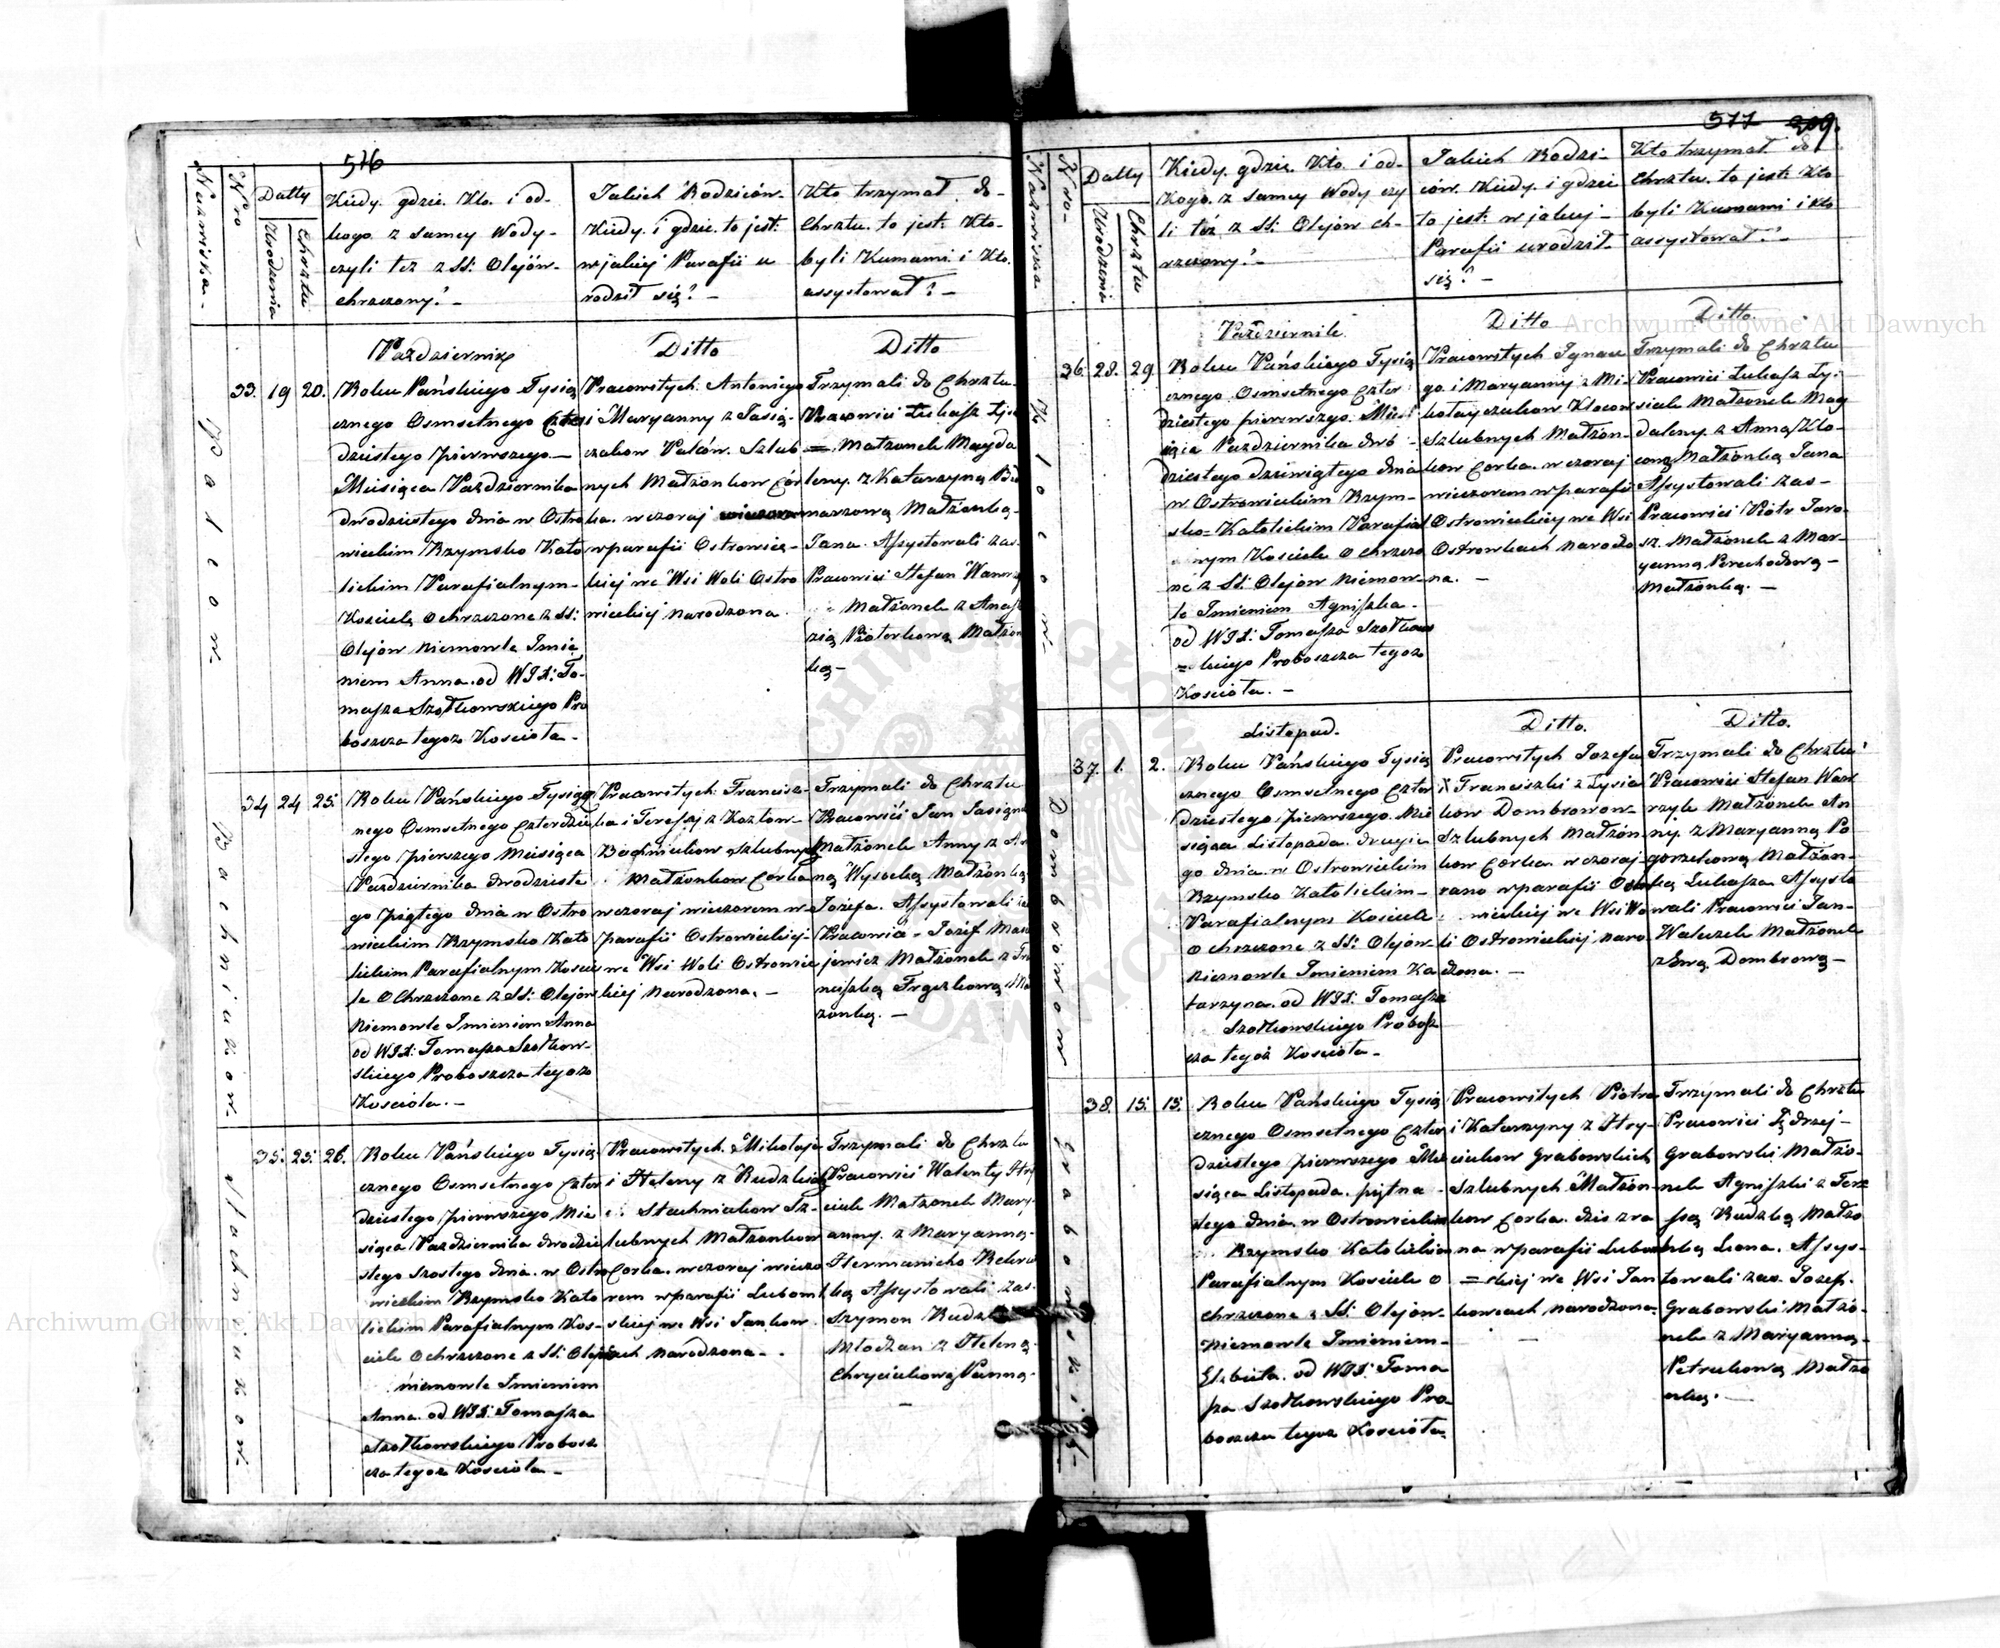 516
Nazwiska.
Nro
Datty
Urodzenia
Chrztu
Kiedy. gdzie. Kto. i od-
kogo z samey Wody-
czyli też z SS: Olejów-
chrzczony? –
Jakich Rodziców-
Kiedy. i gdzie. to jest:
w jakiej Parafii u
rodził się? –
Kto trzymał do-
Chrztu. to jest: Kto-
byli Kumami i Kto.
assystował? –
Październik
Ditto
Ditto
33. 19 20.
Palcow.
Roku Pańskiego Tysią
cznego Osmsetnego Czter
dziestego pierwszego –
Miesiąca Października
dwudziestego dnia w Ostro
wieckim Rzymsko Kato
lickim Parafialnym-
Kościele ochrzczone z SS:
Olejów niemowle Imie
niem Anna. od WJX: To-
masza Szołkowskiego Pro
boszcza tegoż Kościoła –
Pracowitych Antoniego
i Maryanny z Jasią-
czakow Palców. Szlub
nych Małżonkow Cór
ka. wczoraj
w parafii Ostrowiec-
kiej we Wsi Woli Ostro
wieckiej narodzona.
Trzymali do Chrztu
Pracowici Łukasz
= Małzonek Magda
leny. z Katarzyną
Małżonką-
Jana. Assystowali zas-
Pracowici Stefan
Małżonek z
Małżon
ką –
34 24 25.
Bachniakow.
Roku Pańskiego Tysiącz
nego Osmsetnego Czterdzie
stego pierszego Miesiąca
Października dwódzieste
go piątego dnia w Ostro
wieckim Rzymsko Kato
lickim Parafialnym Koscie
le Ochrzczone z SS: Olejów
Niemowle Imieniem Anna
od WJX: Tomasza Szołkow-
skiego Proboszcza tegoż
Kościoła. –
Pracowitych Francisz-
ka i Teressy z Kozłow-
Bachniakow Szlubnych
Małżonkow Corka
wczoraj wieczorem w-
parafii Ostrowieckiej-
we Wsi Woli Ostrowie
ckiej Narodzona. –
Trzymali do Chrztu
Pracowici Jan
Małżonek Anny z An
ną Wysocką Małżonką
Jozefa. Assystowali
Pracowici Jozef
Małżonek z
żonką. –
35. 25. 26.
Stachniukow.
Roku Pańskiego Tysią
cznego Osmsetnego Czter
dziestego pierwszego Mie
siąca Października dwódzie
stego szostego dnia. w Ostro
wieckim Rzymsko Kato
lickim Parafialnym Kos-
ciele Ochrzczone z SS: Olejów
niemowle Imieniem
Anna. od WJX: Tomasza
Szołkowskiego Probosz
cza tegoż Kościoła –
Pracowitych. Mikołaja
i Heleny z
Stachniukow Sz-
lubnych Małżonkow
Corka. wczoraj wieczo
rem w parafii Lubom
skiej we Wsi Jankow
cach narodzona. –
Trzymali do Chrztu
Pracowici Walenty
Małzonek Mary-
anny. z Maryanną-
Assystowali zas-
Szymon
Młodzan z Heleną-
Panną.
–
577 309.
Nazwiska
Nro
Datty
Urodzenia
Chrztu
Kiedy. gdzie. Kto. i od-
Kogo. z samey Wody czy
li też z SS: Olejów ch-
rzczony? –
Jakich Rodzi-
ców. Kiedy. i gdzie
to jest: w jakiej –
Parafii urodził
się? –
Kto trzymał do
Chrztu. to jest: Kto
byli Kumami i Kto
assystował? –
Październik
Ditto
Ditto.
36. 28. 29.
Kłocow.
Roku Pańskiego Tysią
cznego Osmsetnego Czter
dziestego pierwszego. Mies
iąca Października dwó-
dziestego dziewiątego dnia
w Ostrowieckim Rzym-
sko= Katolickim Parafial
nym Kościele Ochrzczo
ne z SS: Olejów Niemow-
le Imieniem Agniszka.
od WJX: Tomasza Szołkow
= skiego Proboszcza tegoż
Kościoła. –
Pracowitych Ignace
go. i Maryanny z Mi-
kołayczukow Kłocow
Szlubnych Małżon-
kow Corka. wczoraj
wieczorem w parafii
Ostrowieckiej we Wsi
Ostrowkach narodzo
na. –
Trzymali do Chrztu
Pracowici Łukasz Ły-
siak Małżonek Mag
daleny. z Anną Kło-
cową Małżonką Jana
Assystowali zas –
Pracowici Piotr Jaro-
sz. Małżonek z Mar-
yanną Perechodową –
Małżonką. –
Listopad.
Ditto.
Ditto.
37. 1. 2.
Dombrowow
Roku Pańskiego Tysią
cznego Osmsetnego Czter
dziestego pierwszego. Mie
siąca Listopada. drugie
go dnia. w Ostrowieckim
Rzymsko Katolickim –
Parafialnym Kościele
ochrzczone z SS: Olejów-
niemowle Imieniem Ka
tarzyna. od WJX: Tomasza
Szołkowskiego Probosz
cza tegoż Kościoła –
Pracowitych Jozefa
i Franciszki z Łysia
kow Dombrowow-
Szlubnych Małżon
kow Corka. wczoraj-
rano w parafii Ostro
wieckiej we Wsi Wo
li Ostrowieckiej naro
dzona. –
Trzymali do Chrztu
Pracowici Stefan Waw
rzyk Małżonek An
ny. z Maryanną Po
gorzelcową Małżon-
ką Łukasza Assysto
wali Pracowici Jan-
Walczek Małżonek
z Ewą Dombrową –
38. 15. 15.
Grabowskich
Roku Pańskiego Tysią
cznego Osmsetnego Czter
dziestego pierwszego Mie
siąca Listopada. piętna -
stego dnia. w Ostrowieckim
Rzymsko Katolickim
Parafialnym Kościele o
chrzczone z SS: Olejów-
niemowle Imieniem-
Elzbieta. od WJX: Toma
sza Szołkowskiego Pro-
boszcza tegoż Kościoła
Pracowitych Piotra
i Katarzyny z Hry-
ciukow Grabowskich
Szlubnych Małżon-
kow Corka. dzis zra
na w parafii Lubom
= skiej we Wsi Jan
kowcach narodzona.
–
Trzymali do Chrztu
Pracowici Jędrzej –
Grabowski Małżo-
nek Agniszki z Tere
ssą Rudzką Małżo
nką Leona. Assys-
towali zas. Jozef.
Grabowski Małżo-
nek z Maryanną –
Petrukową Małżo
nką. –
Archiwum Główne Akt Dawnych
Archiwum Główne Akt Dawnych
ARCHIWUM GŁÓWNE AKT DAWNYCH